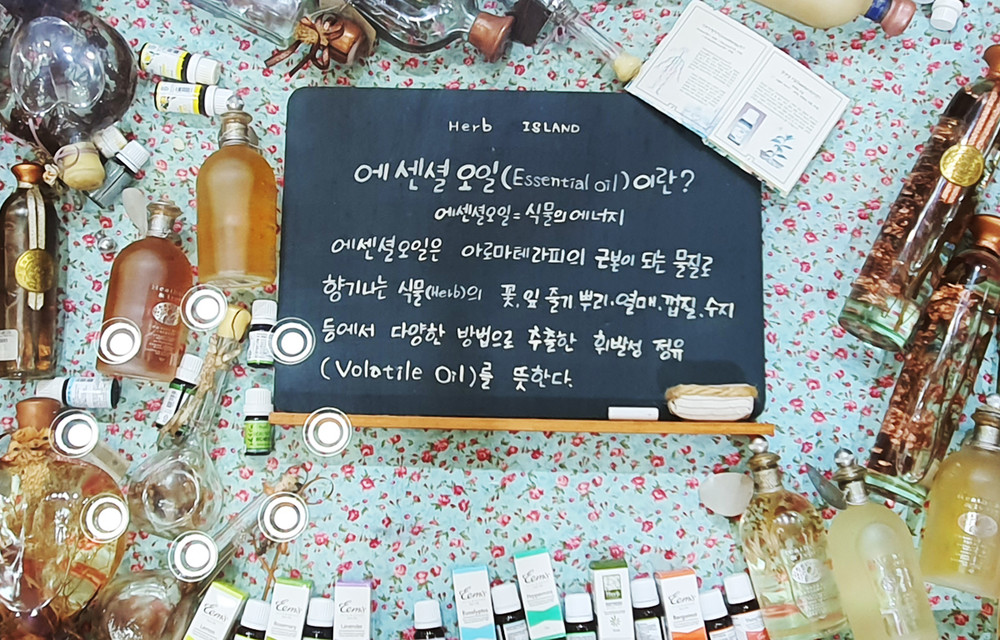 Herb ISLAND
에센셜오일(Essential oil)이란?
에센셜오일=식물의에너지
에센셜오일은 아로마테라피의 근본이 되는 물질로
향기나는 식물(Herb)의 꽃,잎 줄기 뿌리.열매.껍질.수지
등에서 다양한 방법으로 추출한 휘발성 정유
(Volatile Oil)를 뜻한다.
Eem's
Eem's
Eem's
Lavender
Eem's
Eucalyptus
Eem's
Peppermint
Eem's